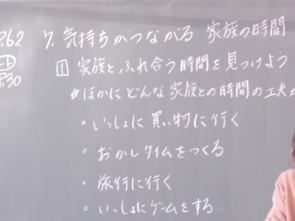 P.62
7. 気持ちがつながる 家族の時間
1 家族と、ふれ合う時間を見つけよう
ほかにどんな家族との時間の工夫が
・いっしょに買い物に行く
・おかしタイムをつくる
・旅行に行く
・いっしょにゲームをする